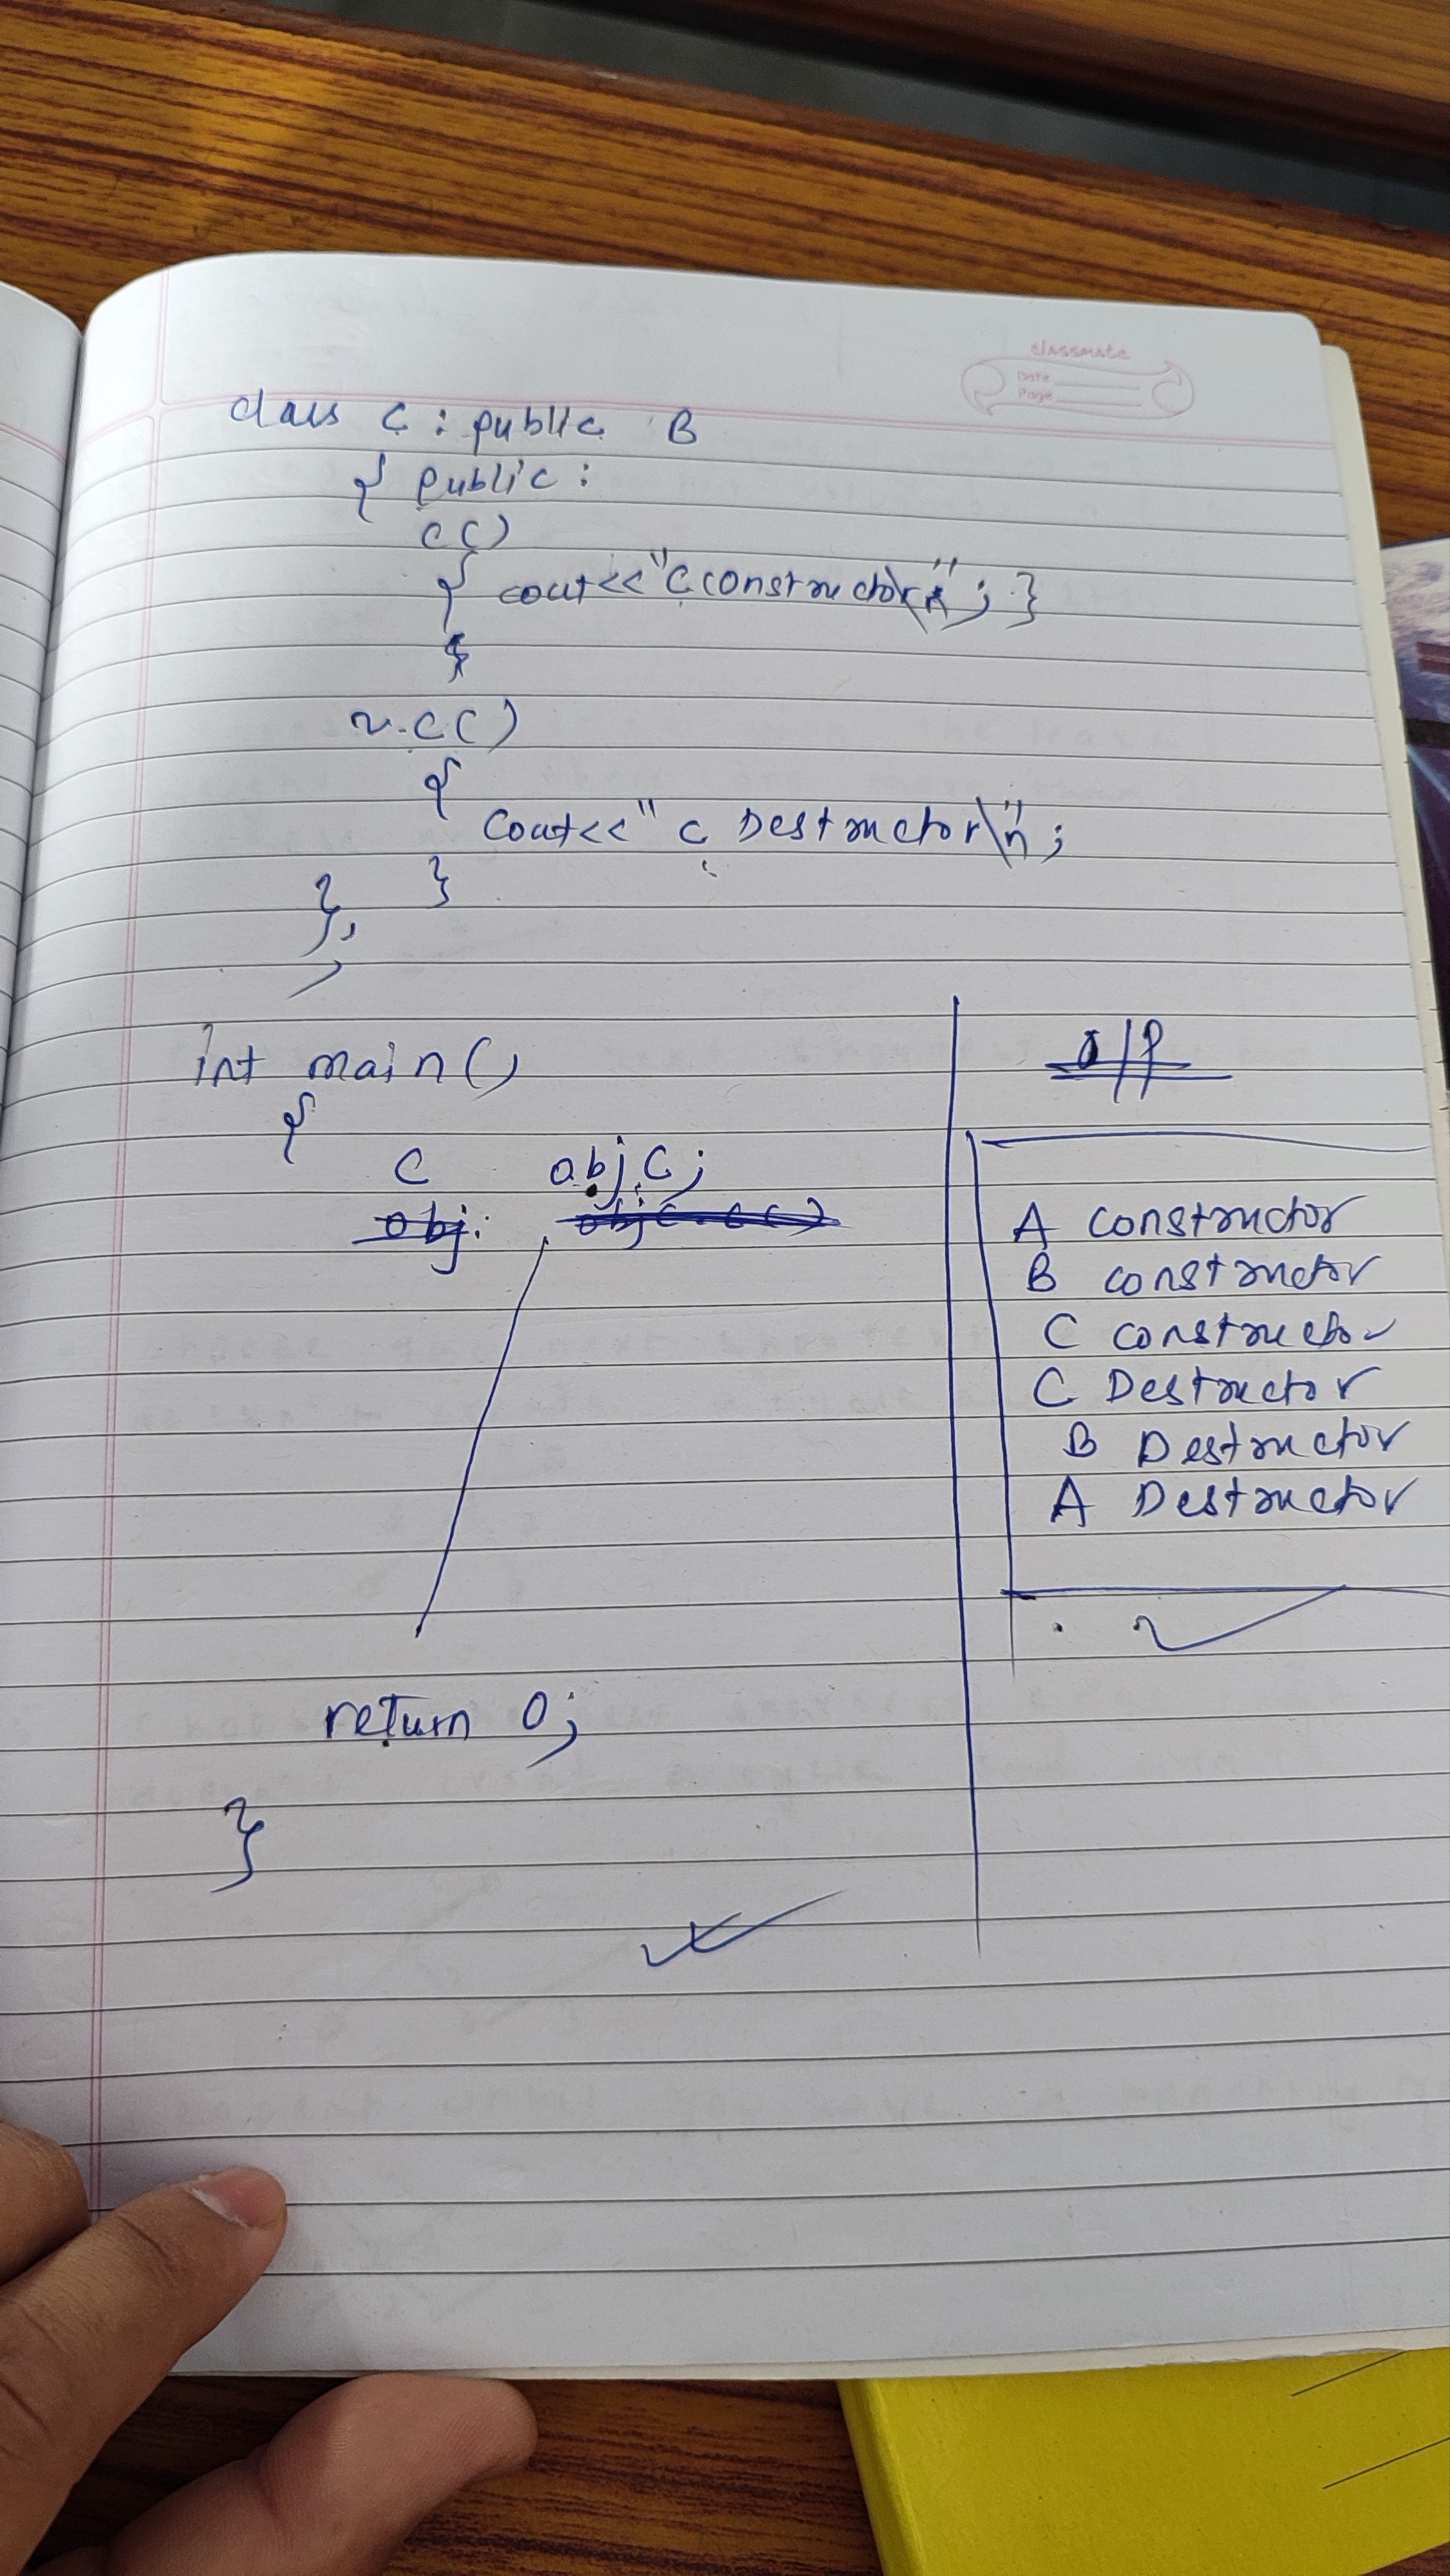 classmate
Date
Page
class C : public B
{ public :
C()
{ cout<<"C constructor\n" ; }
}
~C()
{
Cout<<" C Destructor\n" ;
}
};
int main()
{
C objC;
obj. objc.c()
return 0;
}
O/P
A constructor
B constructor
C constructor
C Destructor
B Destructor
A Destructor